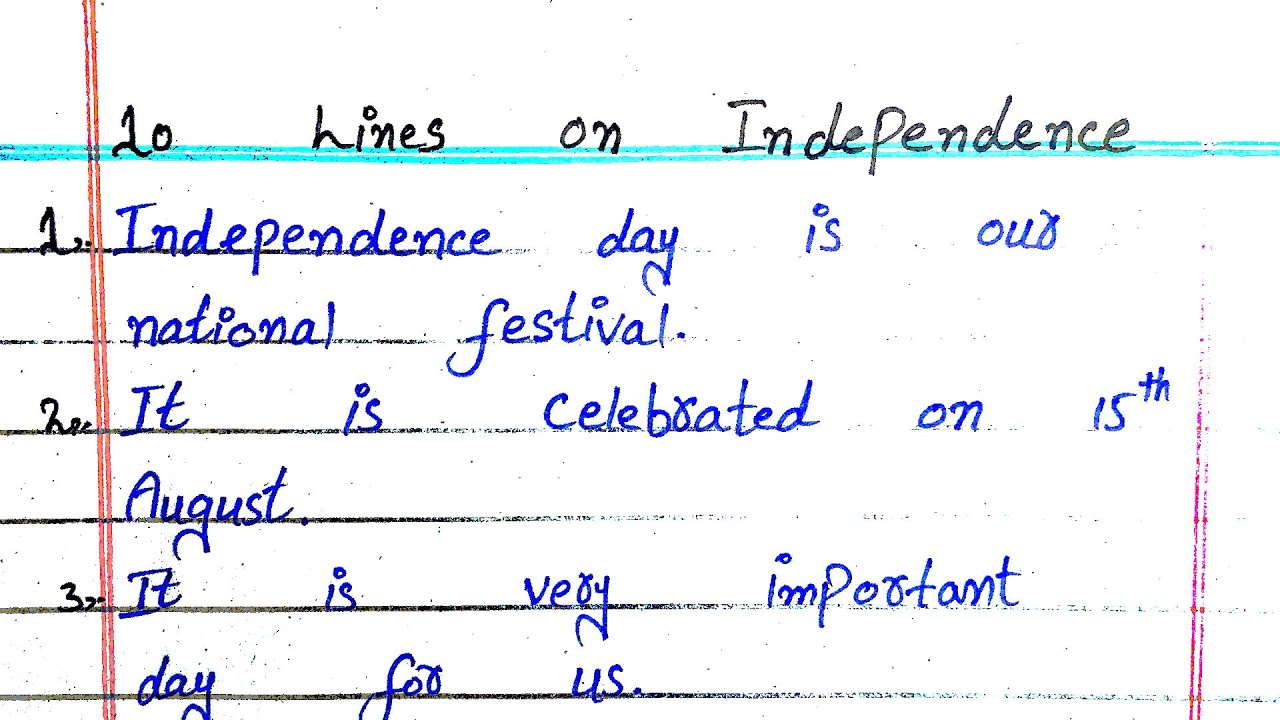 10 Lines on Independence
1. Independence day is our
national festival.
2. It is celebrated on 15th
August.
3. It is very important
day for us.